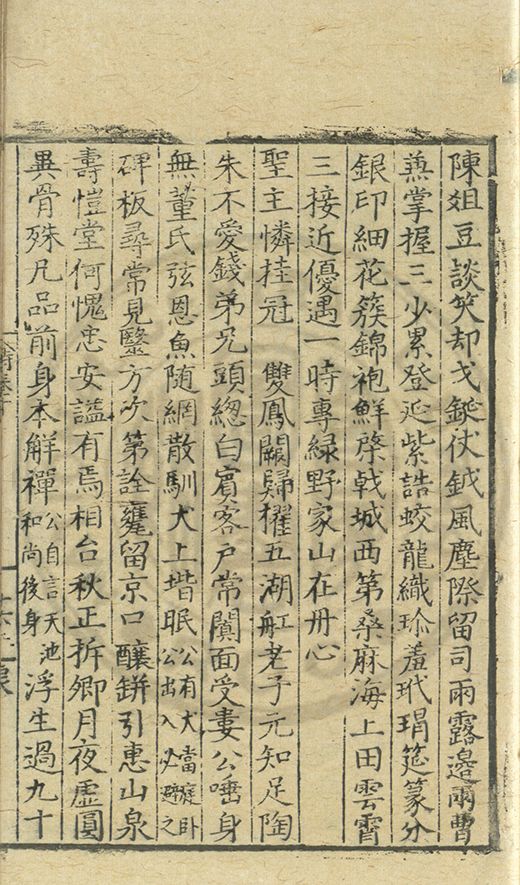 陳俎豆談笑却戈鋋仗鉞風塵際留司雨露邊兩曹
蕪掌握三少累登延紫誥蛟龍織珎羞玳瑁筵篆分
銀印細花簇錦袍鮮棨戟城西第桑麻海上田雲霄
三接近優遇一時專綠野家山在丹心
聖主憐挂冠 雙鳳闕歸櫂五湖舡老子元知足陶
朱不愛錢弟兄頭總白賓客户常闐面受婁公唾身
無董氏弦恩魚隨網散馴犬上堦眠公有犬當庭卧公出入必避之
碑板尋常見毉方次第詮甕留京口釀缾引惠山泉
壽愷堂何愧忠安謚有焉相台秋正拆卿月夜虛圓
異骨殊凡品前身本解禪公自言天池和尚後身浮生過九十